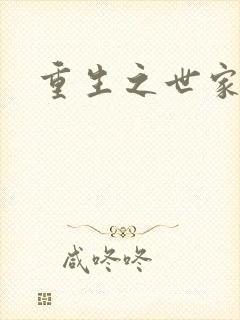 重生之世家
咸咚咚